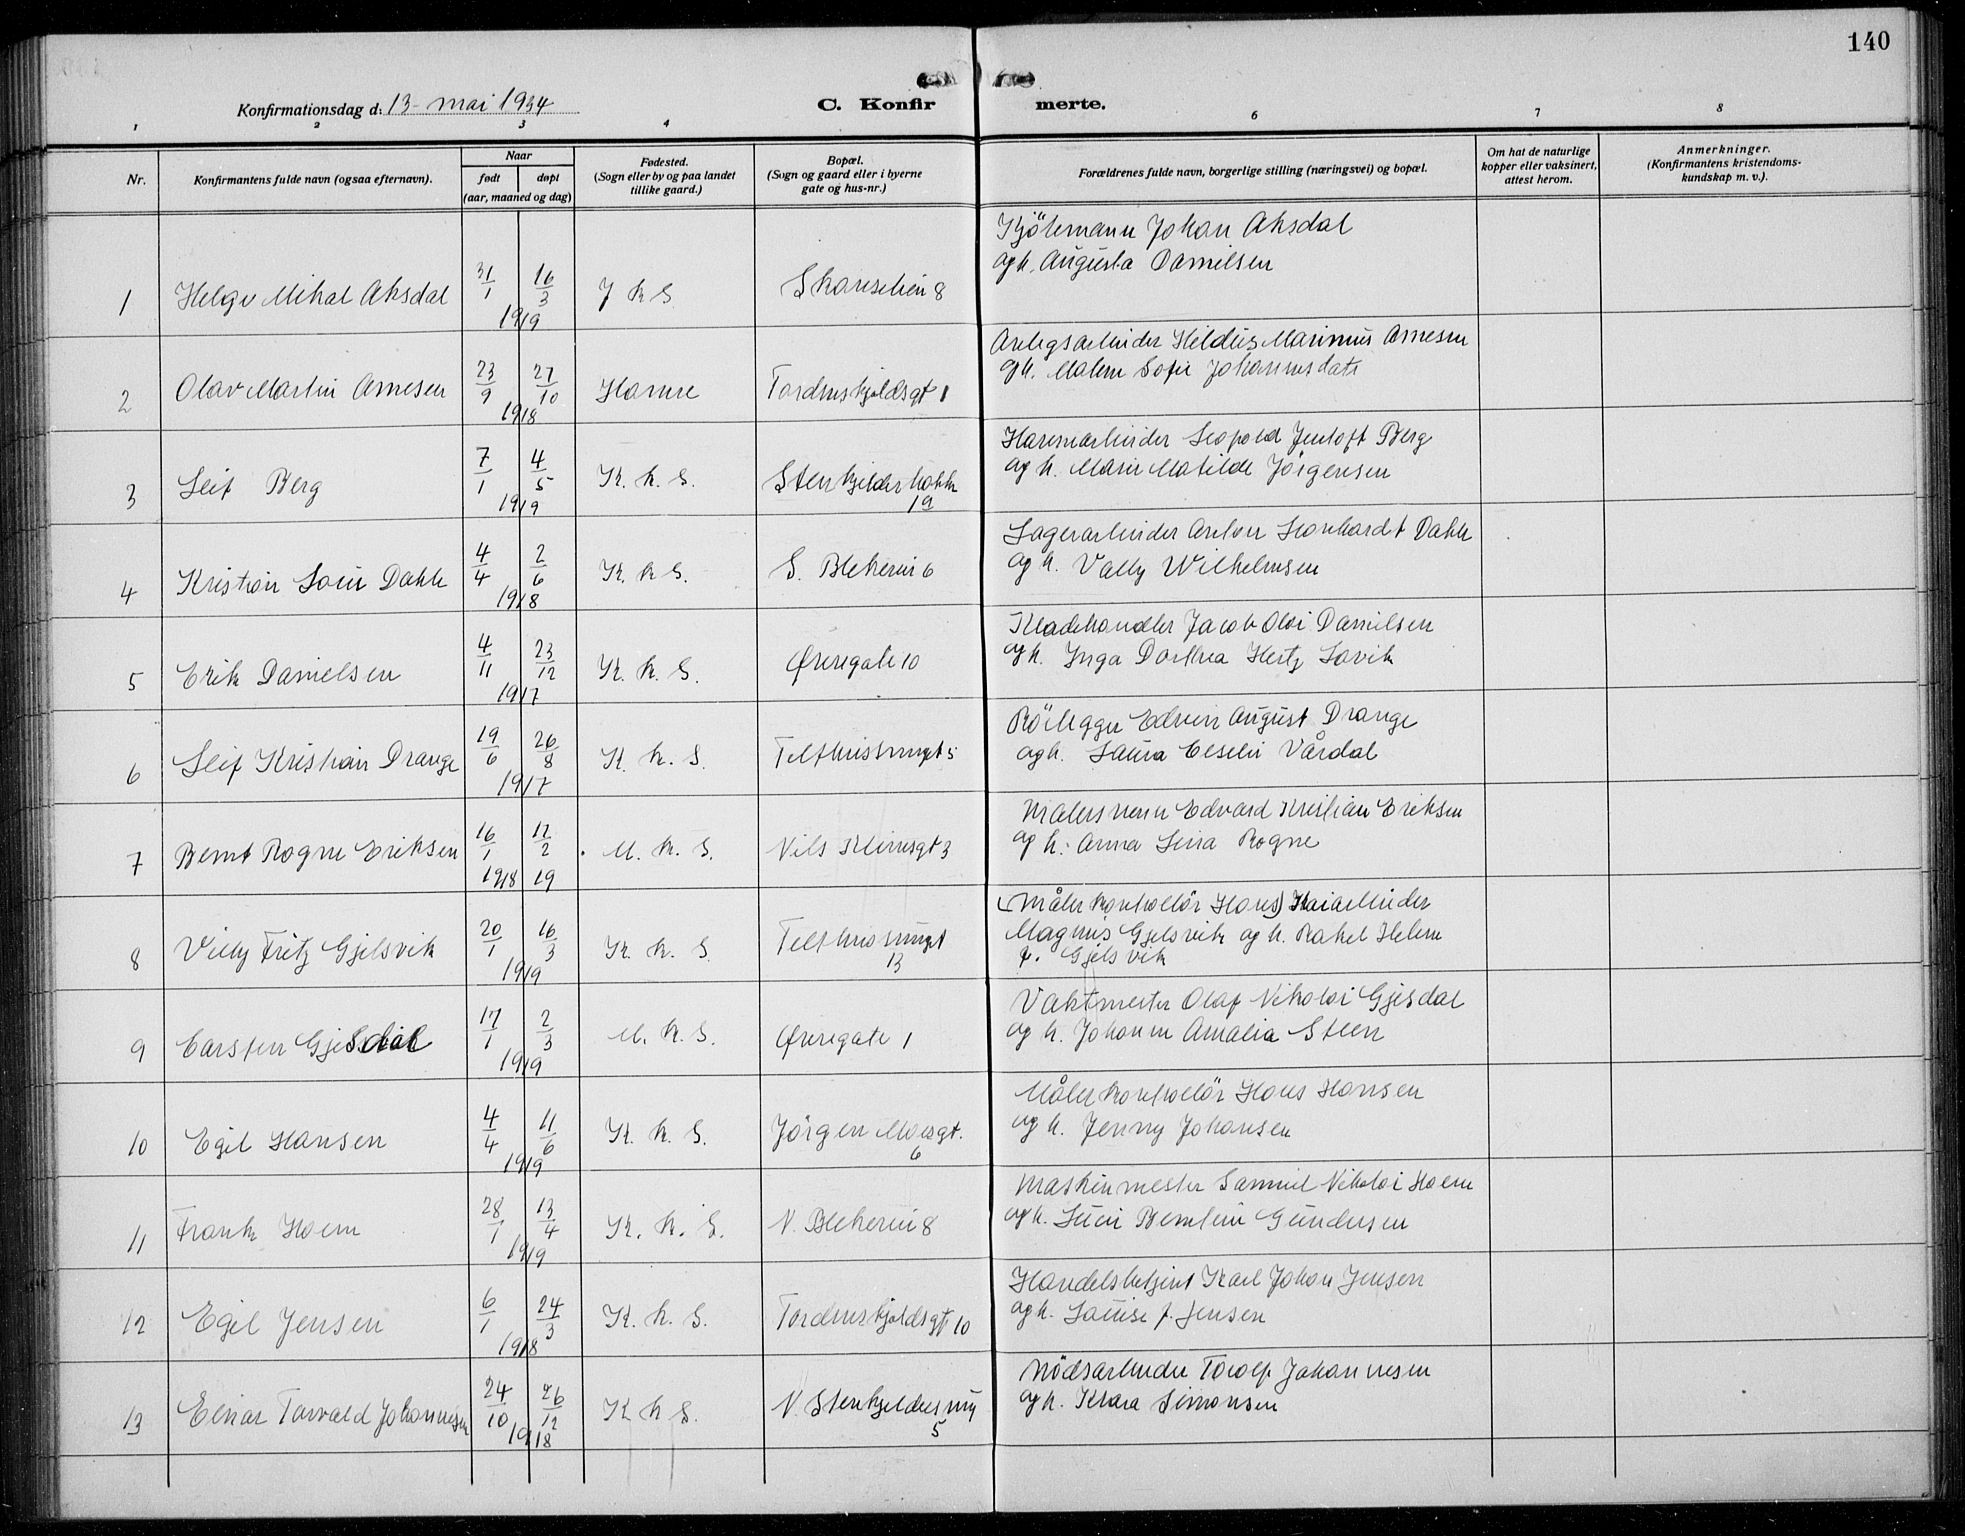 140
Konfirmationsdag d: 13 - mai 1934
C. Konfir merte.
1 2 3 4 6 7 8
Nr.
Konfirmantens fulde navn (ogsaa efternavn).
Naar
født døpt
(aar, maaned og dag)
Fødested.
(Sogn eller by og paa landet
tillike gaard.)
Bopæl.
(Sogn og gaard eller i byerne
gate og hus-nr.)
Forældrenes fulde navn, borgerlige stilling (næringsvei) og bopæl.
Om hat de naturlige
kopper eller vaksinert,
attest herom.
Anmerkninger.
(Konfirmantens kristendoms-
kundskap m. v.).
Johan Aksdal
og h. Augusta Danielsen
1 Helge Mikal Aksdal 31/1 16/3 J k S Skanselien 8
1919
Marinius Arnesen
og h. Malene Sofie Johannesdatr
2 Olav Martin Arnesen 23/9 27/10 Hamre Tordenskjoldsgt 1
1918
Havnearbeider Leopold Jentoft Berg
og h. Marie Matilde Jörgensen
3 Leif Berg 7/1 4/5 K. k. S. Stenkjelderbakk
1919 19
Lagerarbeider Anton Leonhardt Dahle
og h. Vally Wilhelmsen
4 Kristian Louis Dahle 4/4 2/6 K. k S. S. Blekevei 6
1918
Kladehandler Jacob Olai Danielsen
og h. Inga Dorthea Hertz Lavik
5 Erik Danielsen 4/11 23/12 K. k. S. Øvregate 10
1917
Rörlegger Edvin August Drange
og h. Laura Elselie Vårdal
6 Leif Kristian Drange 19/6 26/8 K. k. S.
1917
Malersvenn Edvard Kristian Eriksen
og h. Anna Lina Rogne
7 Bernt Rogne Eriksen 16/1 12/2 M. k. S. Nils Klimsgt 3
1918 19
(Målerkontrollör Hans) Kaiarbeider
Magnus Gjelsvik og h. Rakel Helene
f. Gjelsvik
8 Villy Fritz Gjelsvik 20/1 16/3 K. k. S.
1919 13
Vaktmester Olaf Nikolai Gjesdal
og h. Johanne Amalia Steen
9 Carsten Gjesdal 17/1 2/3 M. k. S. Øvregate 1
1919
Målerkontrollör Hans Hansen
og h. Jenny Johansen
10 Egil Hansen 4/4 11/6 K. k. S. Jörgen Moesgt.
1919 6
Maskinmester Samuel Nikolai Hoem
og h. Gundersen
11 Frank Hoem 28/1 13/4 K. k. S. N. Blekevei 8
1919
Handelsbetjent Karl Johan Jensen
og h. Louise f. Jensen
12 Egil Jensen 6/1 24/3 K. k. S. Tordenskjoldsgt 10
1918
Nödsarbeider Torolf Johannesen
og h. Klara Simonsen
13 Einar Torvald Johannesen 24/10 26/12 K k S. N. Stenkjeldersmg
1918 5